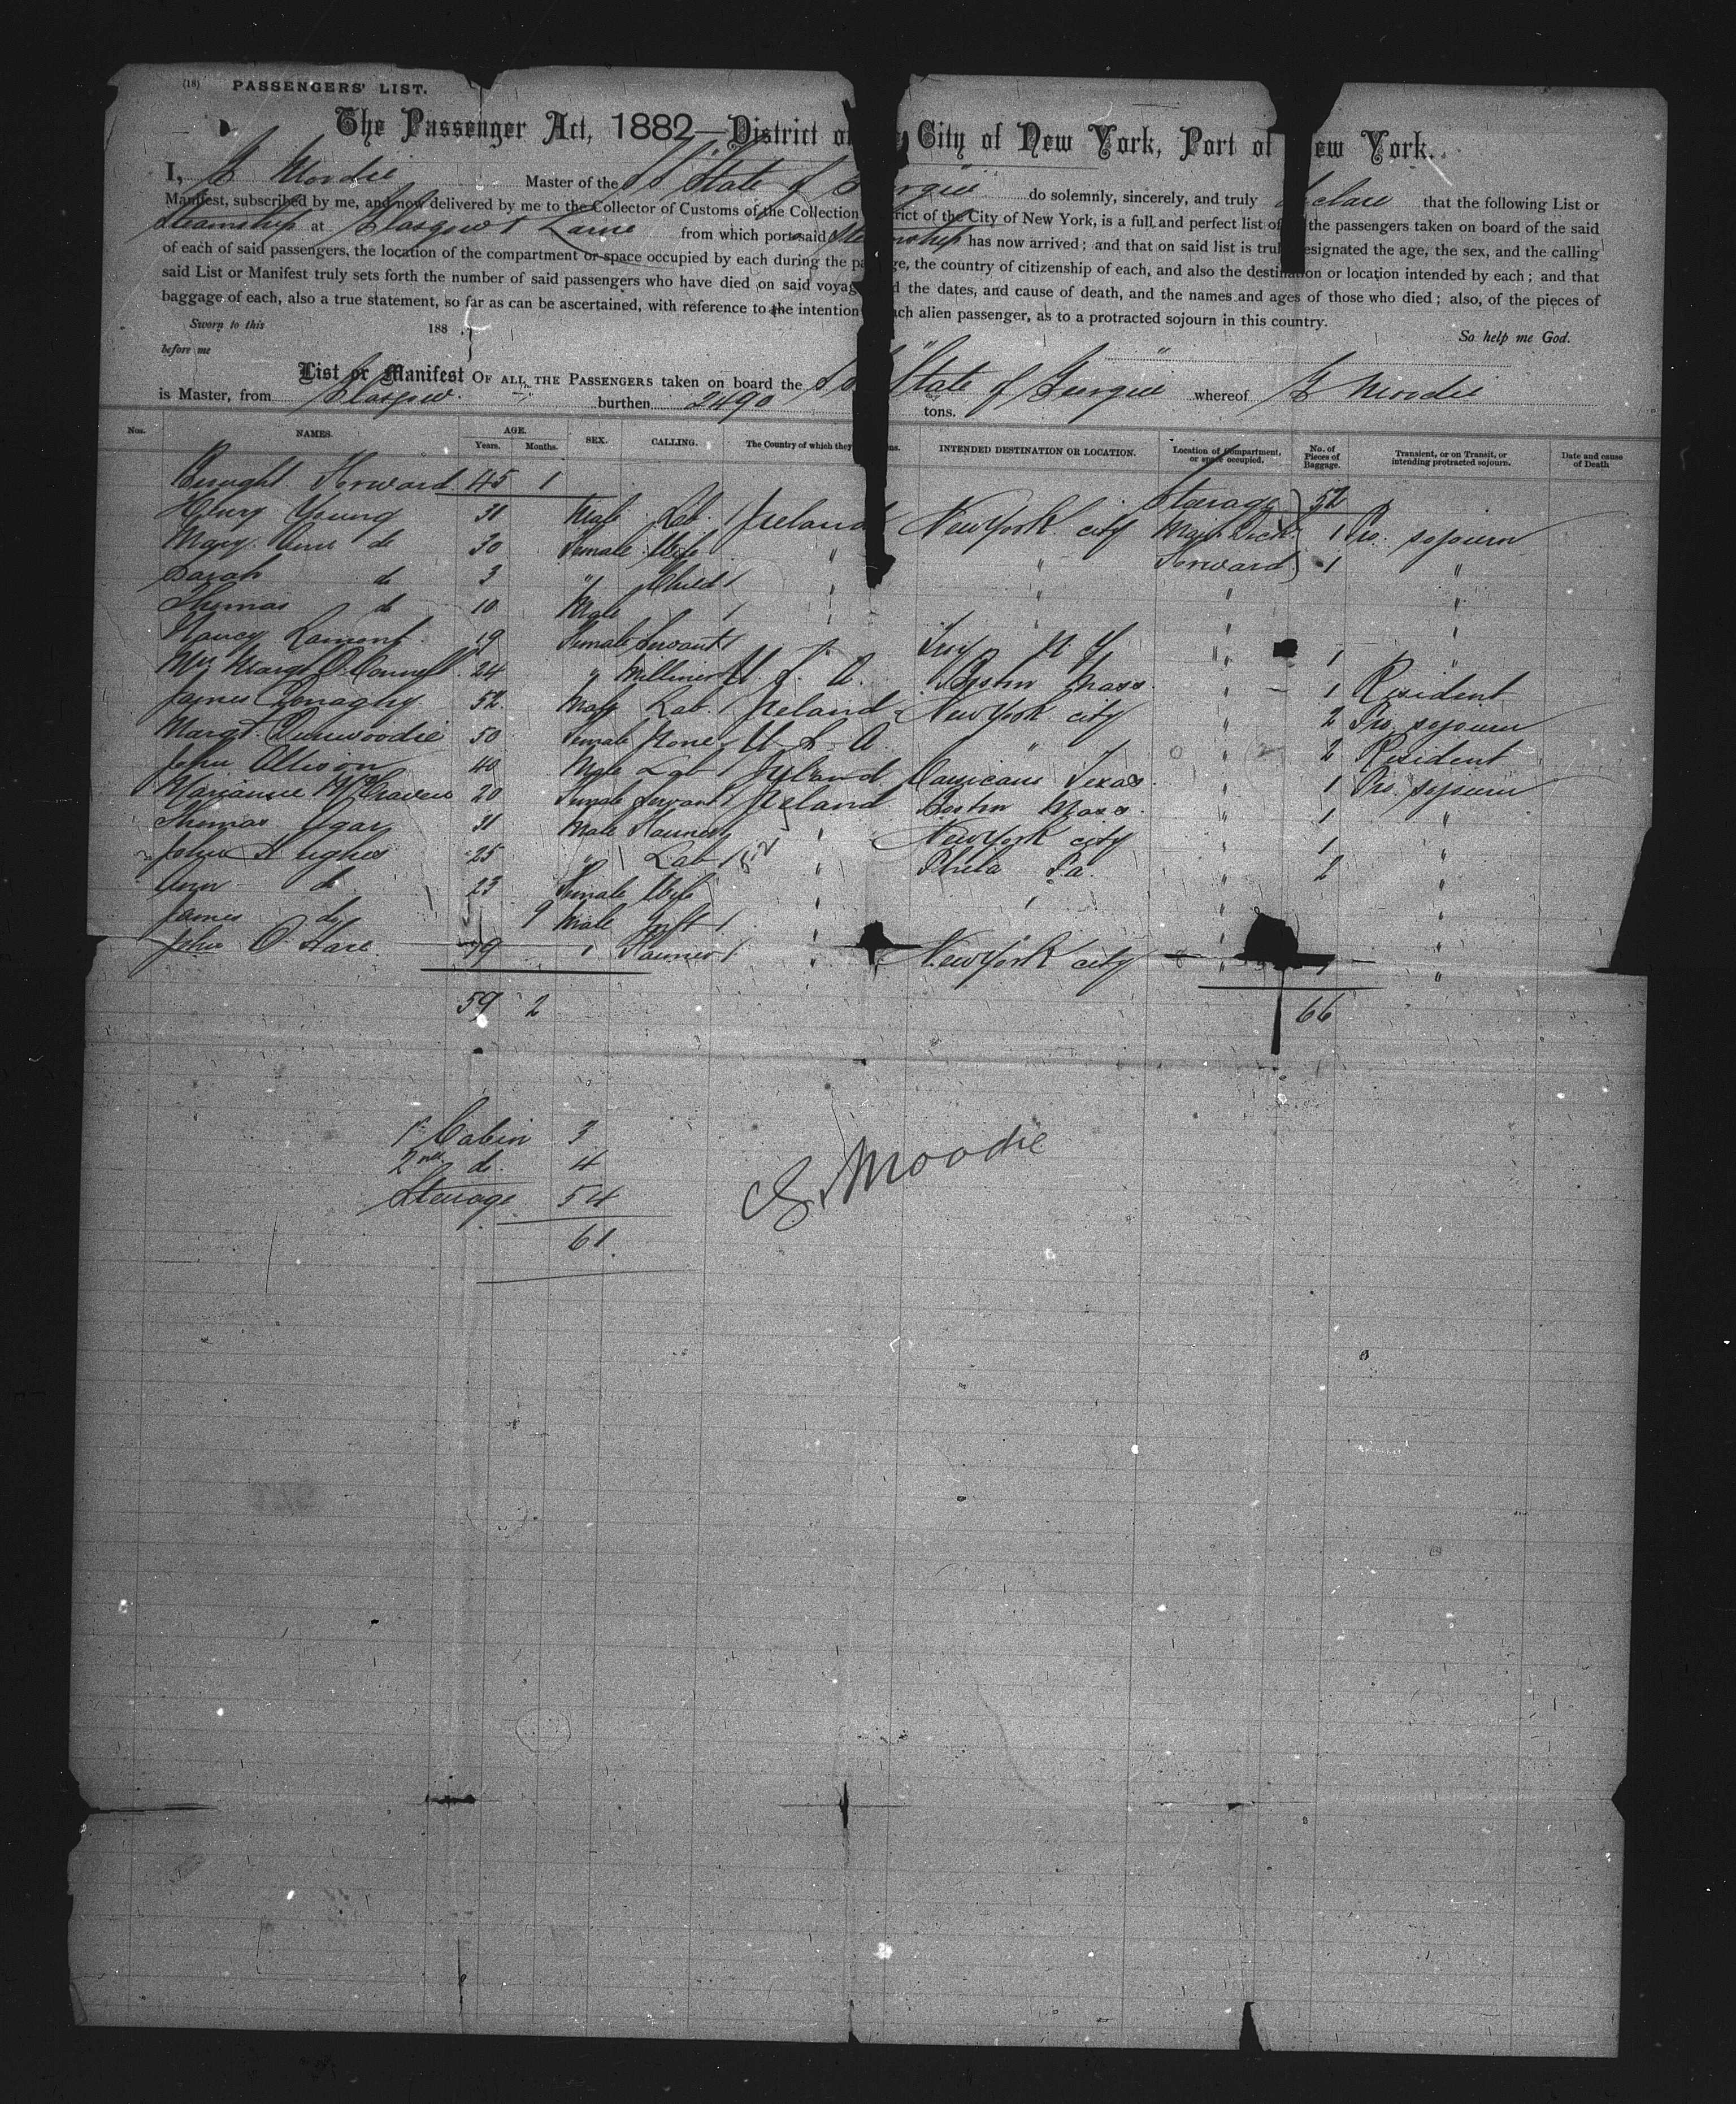 (18) PASSENGERS' LIST.
The Passenger Act, 1882—District of City of New York, Port of ew York.
I, G Moodie Master of the SS "State of Georgia" do solemnly, sincerely, and truly declare that the following List or
Manifest, subscribed by me, and now delivered by me to the Collector of Customs of the Collection rict of the City of New York, is a full and perfect list of the passengers taken on board of the said
Steamship at Glasgow & Larne from which port said Steamship has now arrived; and that on said list is trul esignated the age, the sex, and the calling
of each of said passengers, the location of the compartment or space occupied by each during the pa ge, the country of citizenship of each, and also the destination or location intended by each; and that
said List or Manifest truly sets forth the number of said passengers who have died on said voyag d the dates, and cause of death, and the names and ages of those who died; also, of the pieces of
baggage of each, also a true statement, so far as can be ascertained, with reference to the intention ch alien passenger, as to a protracted sojourn in this country.
Sworn to this 188 So help me God.
before me
List or Manifest OF ALL THE PASSENGERS taken on board the SS "State of Georgia" whereof G Moodie
is Master, from Glasgow burthen 2490 tons.
Nos. NAMES. AGE. Years. Months. SEX. CALLING. The Country of which they ns. INTENDED DESTINATION OR LOCATION. Location of Compartment, or space occupied. No. of Pieces of Baggage. Transient, or on Transit, or intending protracted sojourn. Date and cause of Death
Brought Forward 45 1 Steerage 52
Henry Young 31 Male Lab. 1 Ireland New York city Main Deck 1 Pro. sojourn
Mary Ann do 30 Female Wife " " Forward 1 "
Sarah do 3 " Child 1 " " " "
Thomas do 10 Male 1 " " "
Nancy Lamont 19 Female Servant 1 " Troy N. Y. " 1 "
Mrs Margt O'Connell 24 " Milliner U. S. A. Boston Mass " 1 Resident
James Conaghy 52 Male Lab. 1 Ireland New York city " 2 Pro sojourn
Margt Dunwoodie 50 Female None U. S. A " " 2 Resident
John Allison 40 Male Lab 1 Ireland Corsicana Texas " 1 Pro. sojourn
Marianne McCraven 20 Female Servant 1 Ireland Boston Mass " 1 "
Thomas Agar 31 Male Farmer " New York city " 1 "
John Hughes 25 " Lab 1 " Phila Pa " 2 "
Ann do 23 Female Wife " " " "
James do 9 Male Inft 1 " " "
John O'Hare 49 " Farmer 1 " New York city " 1 "
59 2 66
1st Cabin 3
2nd do. 4
Steerage 54
61
G. Moodie